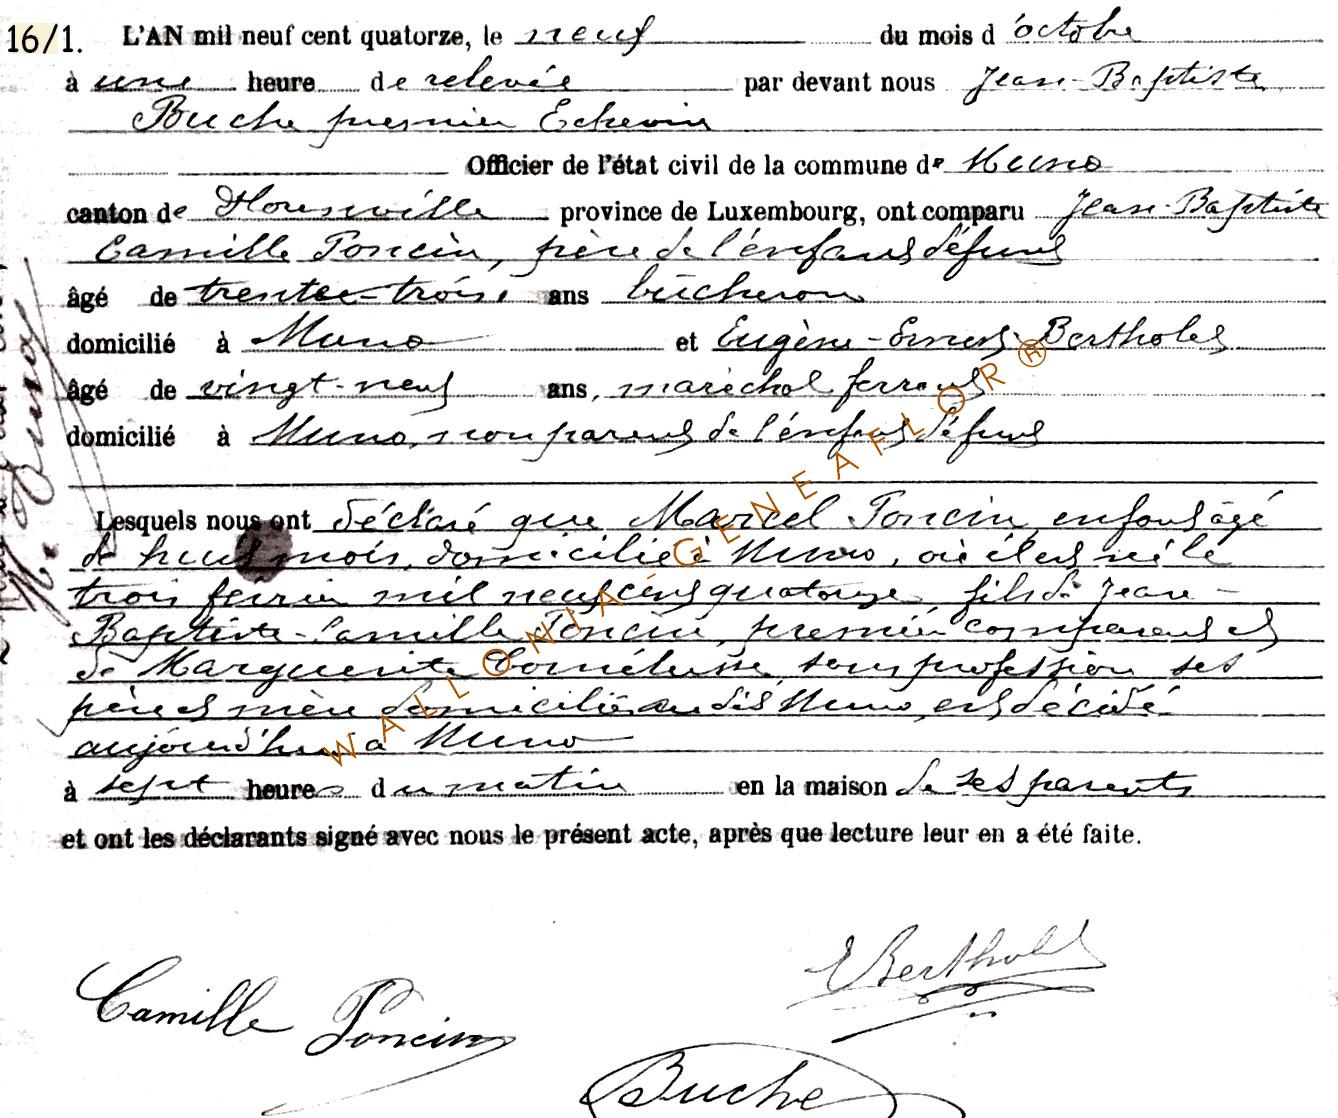 16/1. L'AN mil neuf cent quatorze, le neuf du mois d'octobre
à une heure de relevée par devant nous Jean-Baptiste
Buche premier Echevin
Officier de l'état civil de la commune de Muno
canton de Florenville province de Luxembourg, ont comparu Jean-Baptiste
Camille Poncin, père de l'enfant défunt
âgé de trente-trois ans bûcheron
domicilié à Muno et Eugène-Ernest Bertholet
âgé de vingt-neuf ans, maréchal ferrant
domicilié à Muno, non parent de l'enfant défunt
Lesquels nous ont déclaré que Marcel Poncin, enfant âgé
de huit mois, domicilié à Muno, où il est né le
trois février mil neuf cent quatorze, fils de Jean-
Baptiste-Camille Poncin, premier comparant et
de Marguerite sans profession ses
père et mère domiciliés au dit Muno, est décédé
aujourd'hui à Muno
à sept heures du matin en la maison de ses parents
et ont les déclarants signé avec nous le présent acte, après que lecture leur en a été faite.
E Bertholet
Camille Poncin
Buche
WALLONIA GENEAFLOR ®